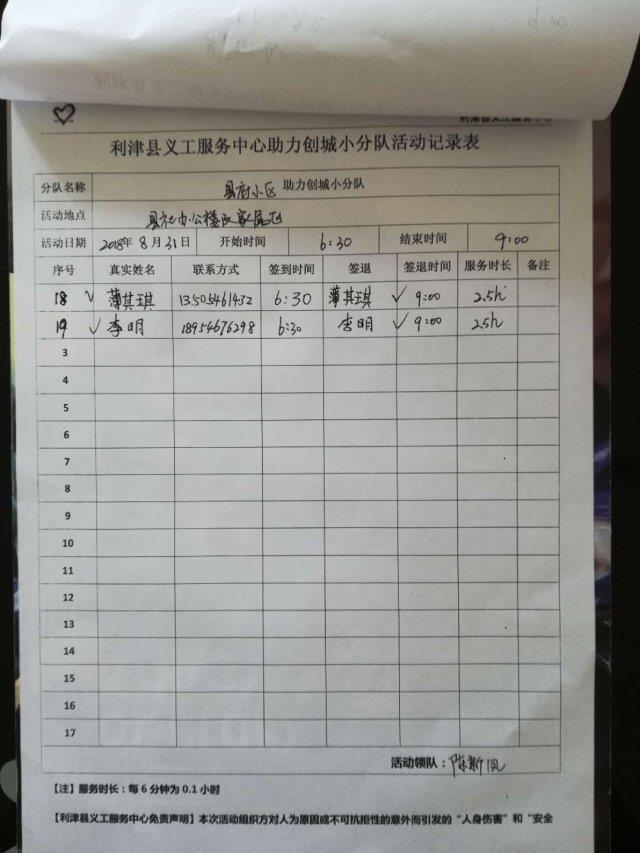 利津县义工服务中心
利津县义工服务中心助力创城小分队活动记录表
分队名称 县府小区 助力创城小分队
活动地点 县社办公楼及家属区
活动日期 2018年8月31日 开始时间 6:30 结束时间 9:00
序号 真实姓名 联系方式 签到时间 签退 签退时间 服务时长 备注
18 ✓ 薄其琪 13505461432 6:30 薄其琪 ✓ 9:00 2.5h
19 ✓ 李明 18954676298 6:30 李明 ✓ 9:00 2.5h
3
4
5
6
7
8
9
10
11
12
13
14
15
16
17
活动领队：陈新凤
【注】服务时长：每6分钟为0.1小时
【利津县义工服务中心免责声明】本次活动组织方对人为原因或不可抗拒性的意外而引发的“人身伤害”和“安全